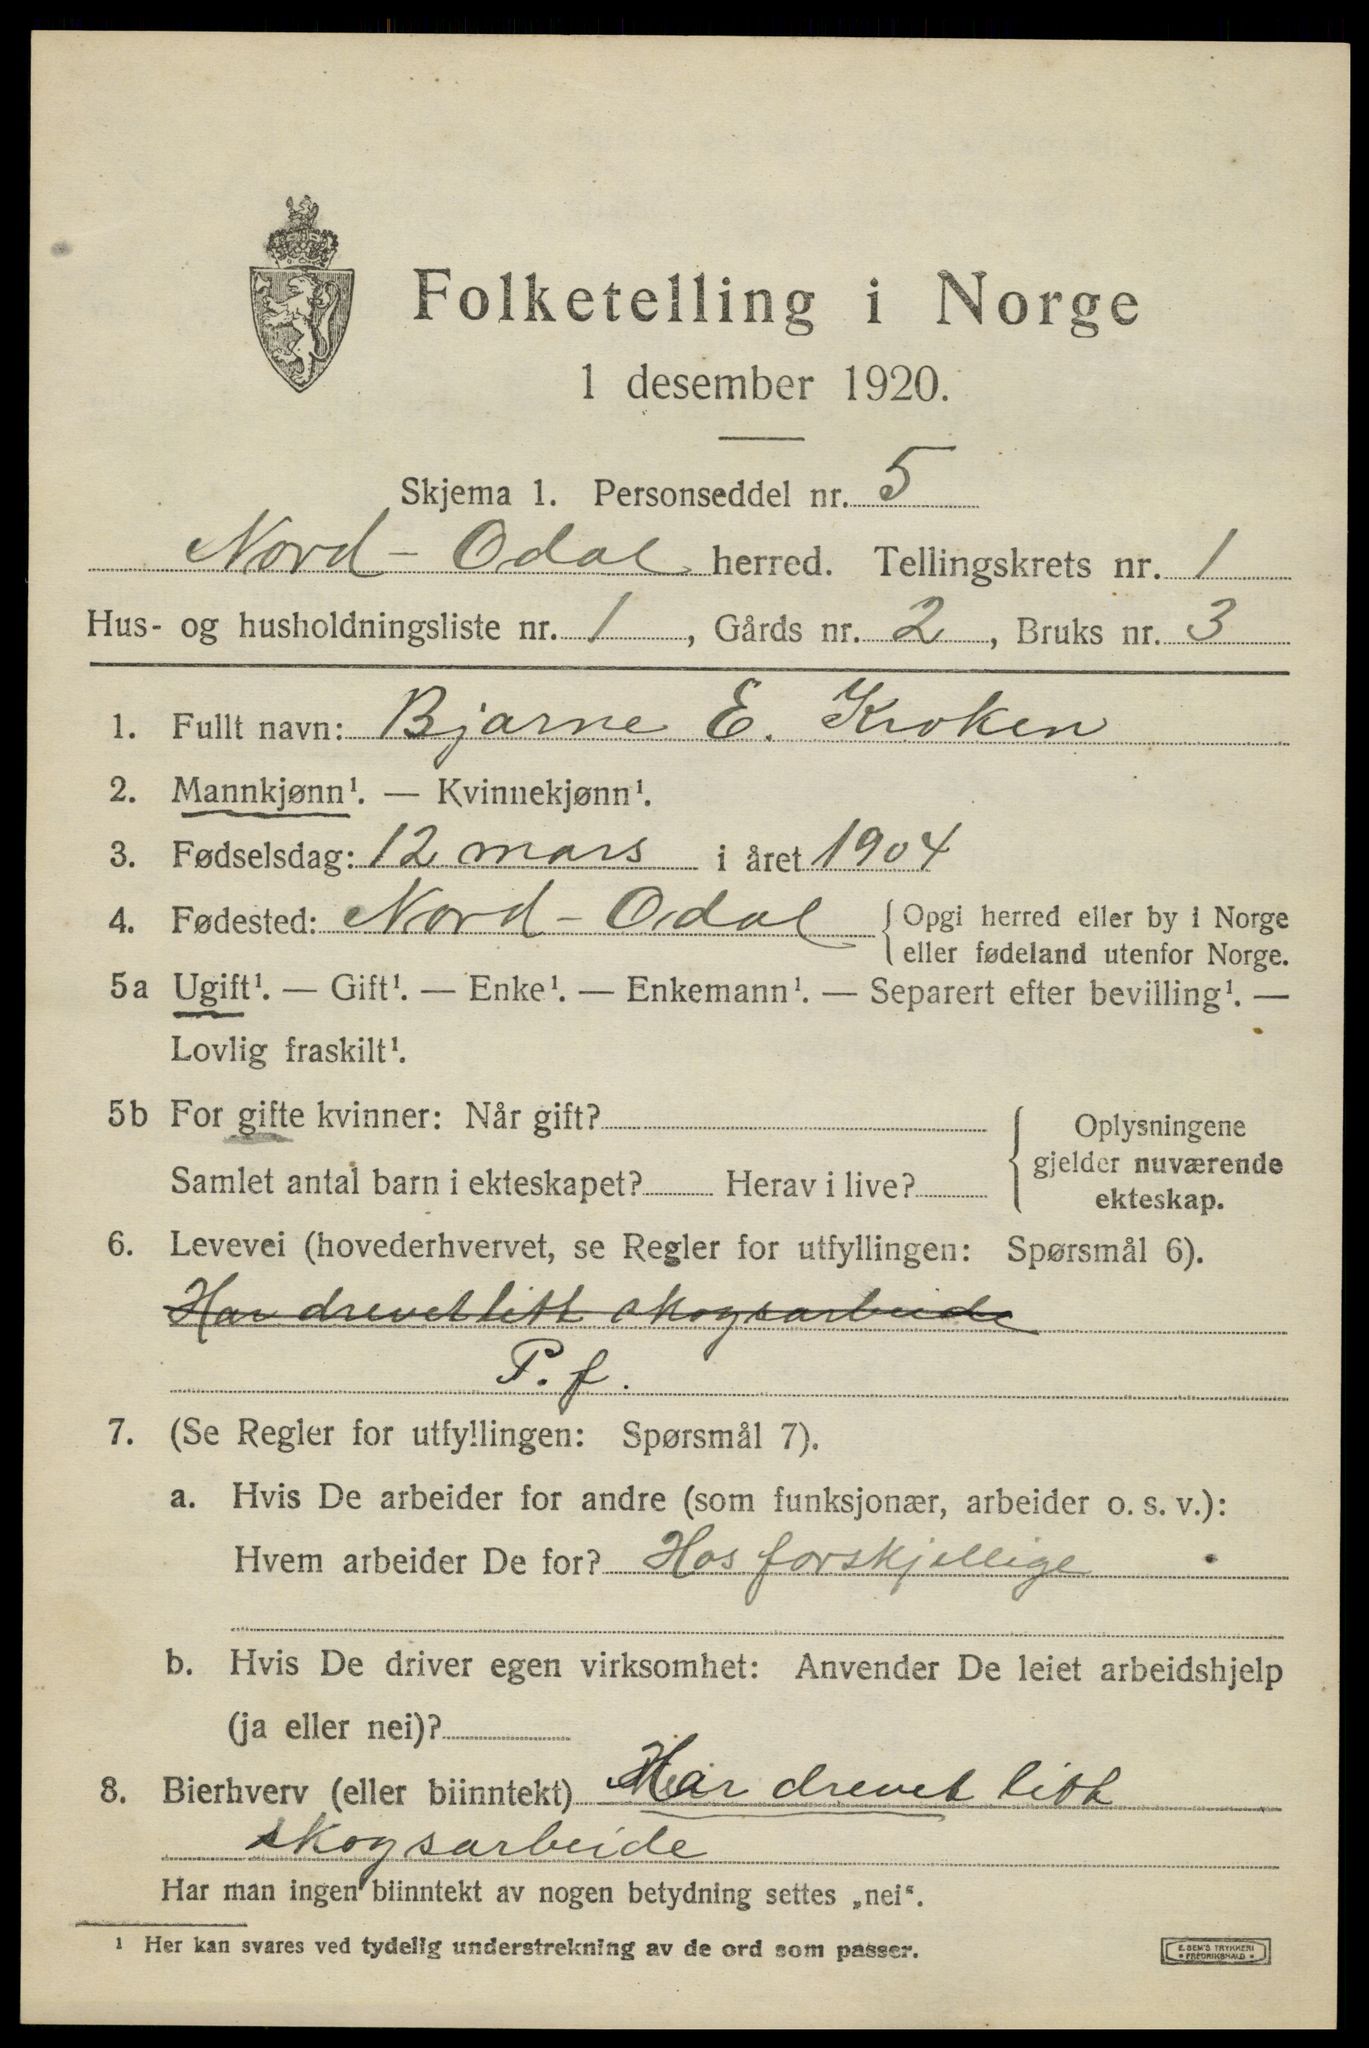 Folketelling i Norge
1 desember 1920.
Skjema 1. Personseddel nr. 5
Nord-Odal herred. Tellingskrets nr. 1
Hus- og husholdningsliste nr. 1, Gårds nr. 2, Bruks nr. 3
1. Fullt navn: Bjarne E. Kroken
2. Mannkjønn¹. — Kvinnekjønn¹.
3. Fødselsdag: 12 mars i året 1904
4. Fødested: Nord-Odal { Opgi herred eller by i Norge
eller fødeland utenfor Norge.
5a Ugift¹. — Gift¹. — Enke¹. — Enkemann¹. — Separert efter bevilling¹. —
Lovlig fraskilt¹.
5b For gifte kvinner: Når gift?
Samlet antal barn i ekteskapet? Herav i live?
{ Oplysningene
gjelder nuværende
ekteskap.
6. Levevei (hovederhvervet, se Regler for utfyllingen: Spørsmål 6).
Har drevet litt skogsarbeide
P. f.
7. (Se Regler for utfyllingen: Spørsmål 7).
a. Hvis De arbeider for andre (som funksjonær, arbeider o. s. v.):
Hvem arbeider De for? Hos forskjellige
b. Hvis De driver egen virksomhet: Anvender De leiet arbeidshjelp
(ja eller nei)?
8. Bierhverv (eller biinntekt) Har drevet litt
skogsarbeide
Har man ingen biinntekt av nogen betydning settes „nei“.
¹ Her kan svares ved tydelig understrekning av de ord som passer.
E. SEM'S TRYKKERI
* FREDRIKSHALD *